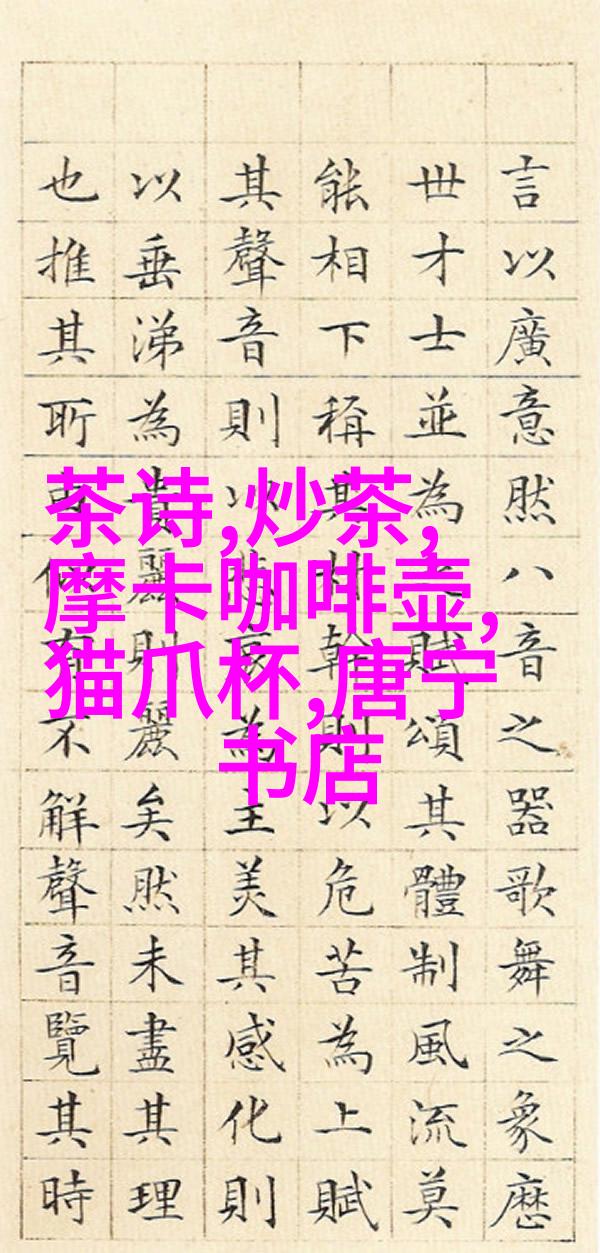 言以廣意然八音之器歌舞之象歷
世才士並為之賦頌其體制風流莫
能相下稱其材幹則以危苦為上賦
其聲音則以悲哀為主美其感化則
以垂涕為貴麗則麗矣然未盡其理
也推其所由似不解聲音覽其時
茶诗,炒茶,
摩卡咖啡壶,
猫爪杯,唐宁
书店